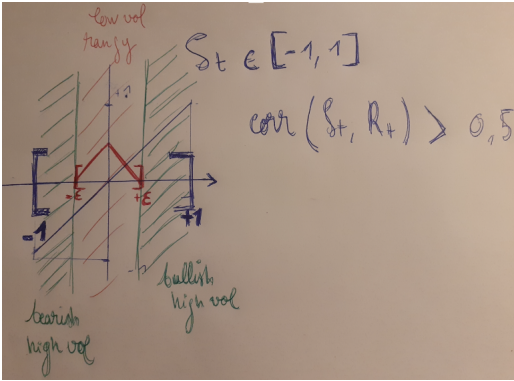 low vol
rangy
S_t ∈ [-1, 1]
+1
corr (S_t, R_t) > 0,5
-ε
+ε
-1
+1
bullish
high vol
bearish
high vol